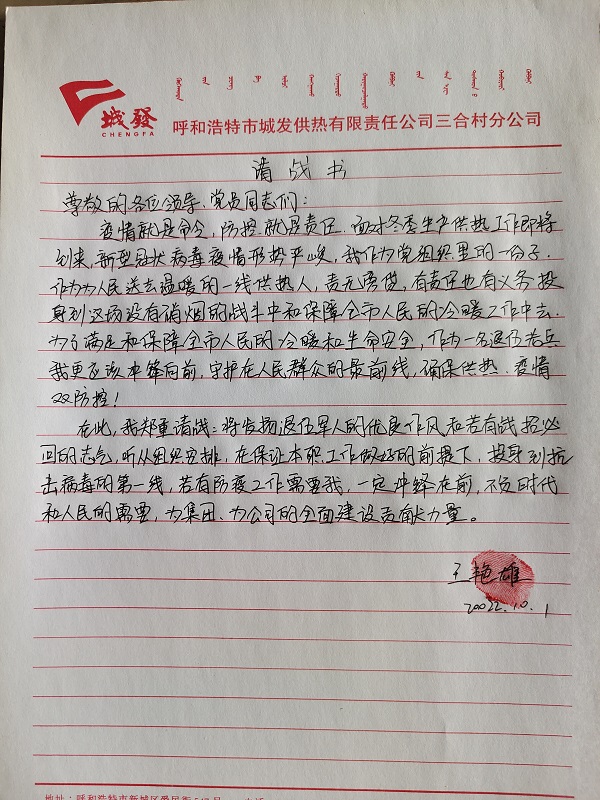 城發
CHENGFA
呼和浩特市城发供热有限责任公司三合村分公司
请战书
尊敬的各位领导、党员同志们：
疫情就是命令，防控就是责任。面对冬季生产供热工作即将
到来，新型冠状病毒疫情形势严峻，我作为党组织里的一份子，
作为为人民送去温暖的一线供热人，责无旁贷，有责任也有义务投
身到这场没有硝烟的战斗中和保障全市人民的冷暖工作中去。
为了满足和保障全市人民的冷暖和生命安全，作为一名退伍老兵
我更应该冲锋向前，守护在人民群众的最前线，确保供热、疫情
双防控！
在此，我郑重请战：将发扬退伍军人的优良作风和若有战招必
回的志气，听从组织安排，在保证本职工作做好的前提下，投身到抗
击病毒的第一线，若有防疫工作需要我，一定冲锋在前，不负时代
和人民的需要，为集团、为公司的全面建设贡献力量。
王艳雄
2022.10.1
地址：呼和浩特市新城区爱民街